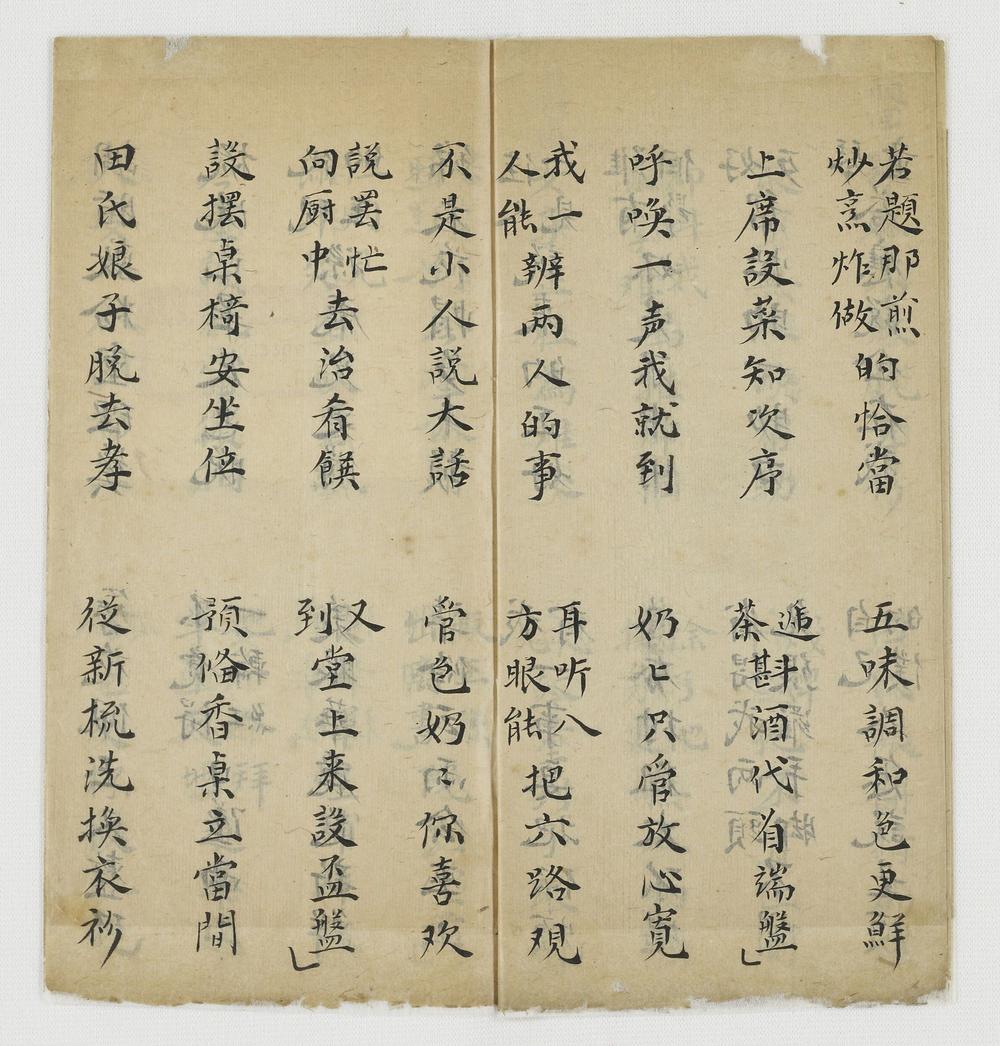 若題那煎炒烹炸做的恰當
五味調和色更鮮
上席設菜知次序
逓茶斟酒代端盤
呼喚一声我就到
奶〻只管放心寬
我一人能辨两人的事
耳听八方眼能把六路覌
不是小人說大話
管包奶〻你喜欢
說罢忙向厨中去治肴饌
又到堂上来設盃盤
設擺桌椅安坐位
預俻香桌立當間
田氏娘子脫去孝
從新梳洗換衣衫